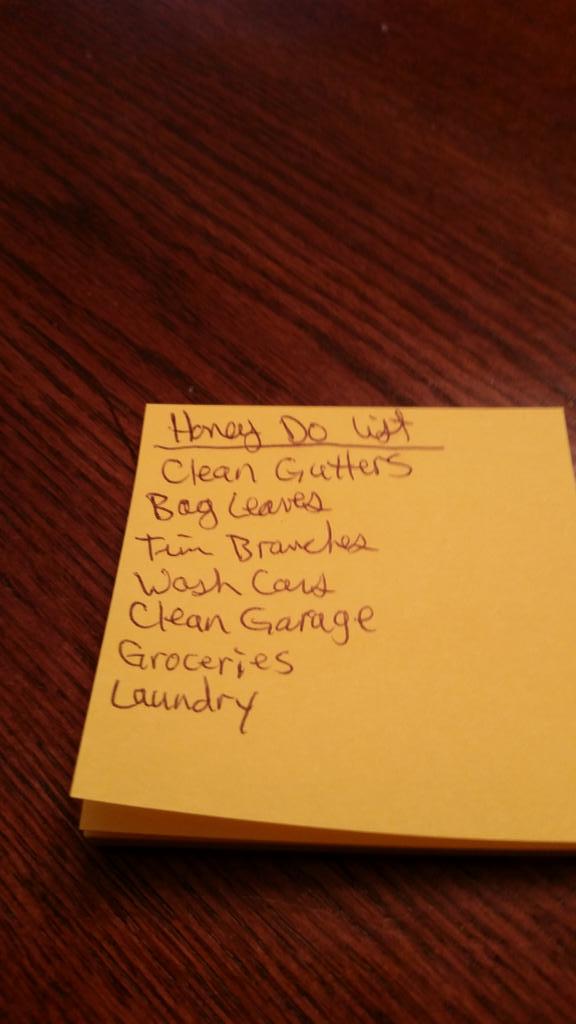 Honey Do List
Clean Gutters
Bag Leaves
Trim Branches
Wash Cars
Clean Garage
Groceries
Laundry